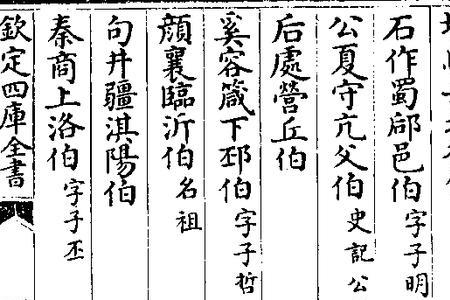 石作蜀郈邑伯字子明
公夏守亢父伯史記公
后處營丘伯
奚容箴下邳伯字子哲
顏襄臨沂伯名祖
句井疆淇陽伯
秦商上洛伯字子丕
欽定四庫全書